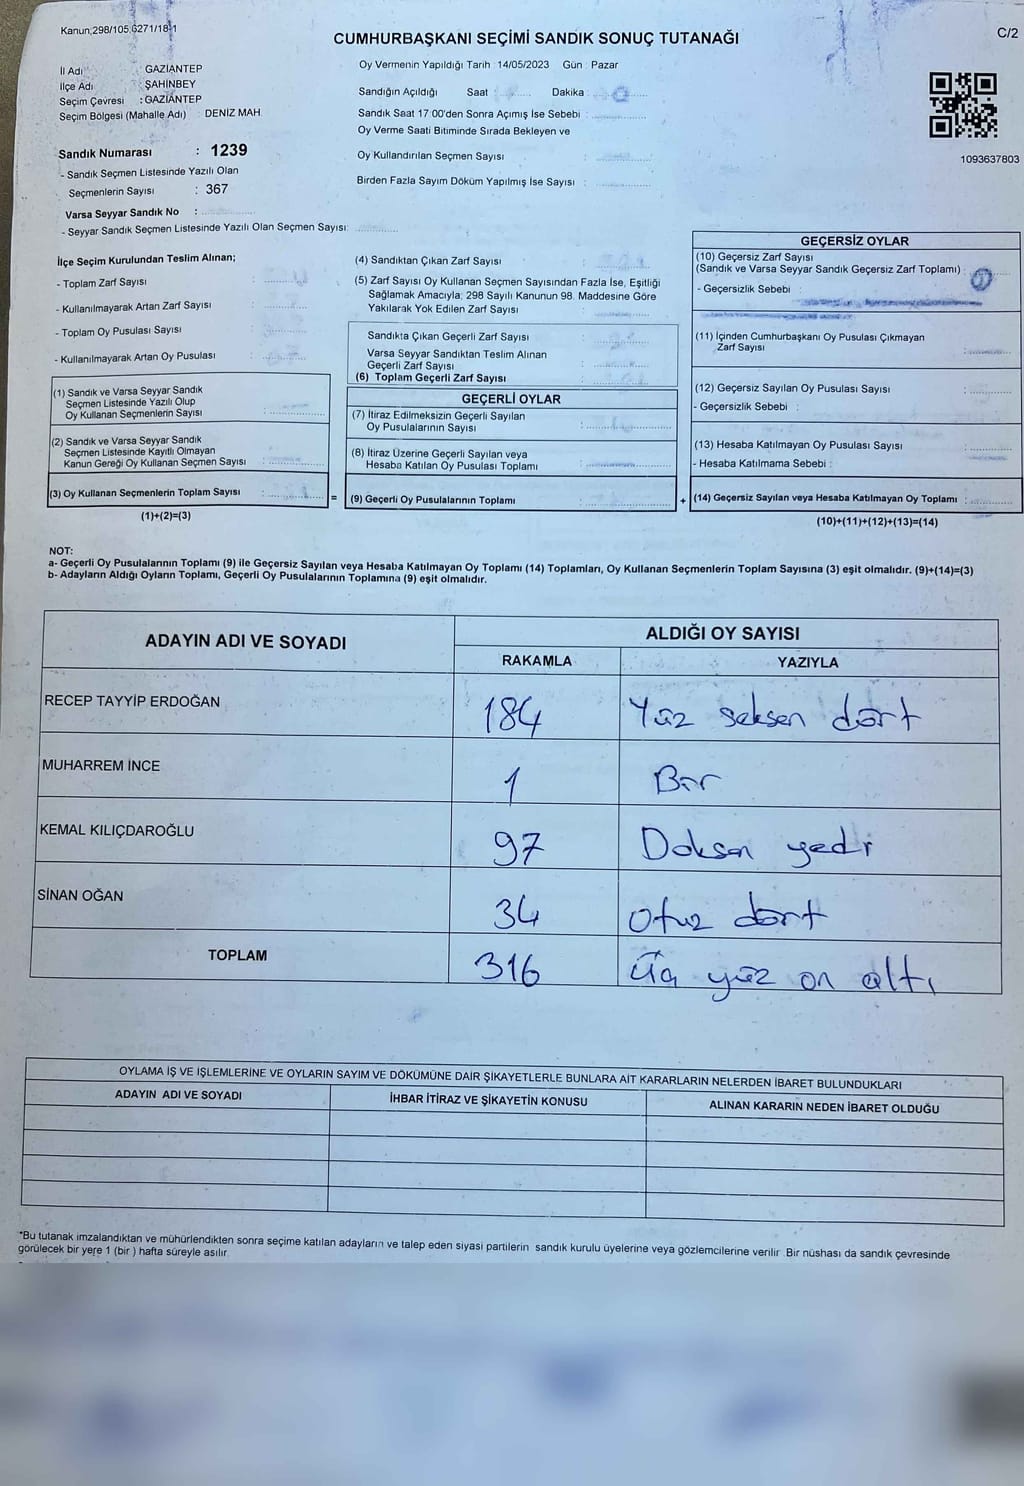 Kanun;298/105,6271/18-1
C/2
CUMHURBAŞKANI SEÇİMİ SANDIK SONUÇ TUTANAĞI
İl Adı : GAZİANTEP
İlçe Adı : ŞAHİNBEY
Seçim Çevresi : GAZİANTEP
Seçim Bölgesi (Mahalle Adı) DENİZ MAH.
Sandık Numarası : 1239
- Sandık Seçmen Listesinde Yazılı Olan
Seçmenlerin Sayısı : 367
Varsa Seyyar Sandık No :
- Seyyar Sandık Seçmen Listesinde Yazılı Olan Seçmen Sayısı:
Oy Vermenin Yapıldığı Tarih : 14/05/2023 Gün : Pazar
Sandığın Açıldığı Saat : Dakika :
Sandık Saat 17:00'den Sonra Açımış İse Sebebi :
Oy Verme Saati Bitiminde Sırada Bekleyen ve
Oy Kullandırılan Seçmen Sayısı :
Birden Fazla Sayım Döküm Yapılmış İse Sayısı :
1093637803
İlçe Seçim Kurulundan Teslim Alınan;
- Toplam Zarf Sayısı :
- Kullanılmayarak Artan Zarf Sayısı :
- Toplam Oy Pusulası Sayısı :
- Kullanılmayarak Artan Oy Pusulası :
(1) Sandık ve Varsa Seyyar Sandık
Seçmen Listesinde Yazılı Olup
Oy Kullanan Seçmenlerin Sayısı :
(2) Sandık ve Varsa Seyyar Sandık
Seçmen Listesinde Kayıtlı Olmayan
Kanun Gereği Oy Kullanan Seçmen Sayısı :
(3) Oy Kullanan Seçmenlerin Toplam Sayısı :
(1)+(2)=(3)
=
(4) Sandıktan Çıkan Zarf Sayısı :
(5) Zarf Sayısı Oy Kullanan Seçmen Sayısından Fazla İse, Eşitliği
Sağlamak Amacıyla; 298 Sayılı Kanunun 98. Maddesine Göre
Yakılarak Yok Edilen Zarf Sayısı :
Sandıkta Çıkan Geçerli Zarf Sayısı :
Varsa Seyyar Sandıktan Teslim Alınan
Geçerli Zarf Sayısı :
(6) Toplam Geçerli Zarf Sayısı :
GEÇERLİ OYLAR
(7) İtiraz Edilmeksizin Geçerli Sayılan
Oy Pusulalarının Sayısı :
(8) İtiraz Üzerine Geçerli Sayılan veya
Hesaba Katılan Oy Pusulası Toplamı :
(9) Geçerli Oy Pusulalarının Toplamı :
+
GEÇERSİZ OYLAR
(10) Geçersiz Zarf Sayısı
(Sandık ve Varsa Seyyar Sandık Geçersiz Zarf Toplamı) :
- Geçersizlik Sebebi :
(11) İçinden Cumhurbaşkanı Oy Pusulası Çıkmayan
Zarf Sayısı :
(12) Geçersiz Sayılan Oy Pusulası Sayısı :
- Geçersizlik Sebebi :
(13) Hesaba Katılmayan Oy Pusulası Sayısı :
- Hesaba Katılmama Sebebi :
(14) Geçersiz Sayılan veya Hesaba Katılmayan Oy Toplamı :
(10)+(11)+(12)+(13)=(14)
NOT:
a- Geçerli Oy Pusulalarının Toplamı (9) ile Geçersiz Sayılan veya Hesaba Katılmayan Oy Toplamı (14) Toplamları, Oy Kullanan Seçmenlerin Toplam Sayısına (3) eşit olmalıdır. (9)+(14)=(3)
b- Adayların Aldığı Oyların Toplamı, Geçerli Oy Pusulalarının Toplamına (9) eşit olmalıdır.
ADAYIN ADI VE SOYADI
ALDIĞI OY SAYISI
RAKAMLA YAZIYLA
RECEP TAYYİP ERDOĞAN 184 Yüz seksen dört
MUHARREM İNCE 1 Bir
KEMAL KILIÇDAROĞLU 97 Doksan yedi
SİNAN OĞAN 34 Otuz dört
TOPLAM 316 Üç yüz on altı
OYLAMA İŞ VE İŞLEMLERİNE VE OYLARIN SAYIM VE DÖKÜMÜNE DAİR ŞİKAYETLERLE BUNLARA AİT KARARLARIN NELERDEN İBARET BULUNDUKLARI
ADAYIN ADI VE SOYADI İHBAR İTİRAZ VE ŞİKAYETİN KONUSU ALINAN KARARIN NEDEN İBARET OLDUĞU
*Bu tutanak imzalandıktan ve mühürlendikten sonra seçime katılan adayların ve talep eden siyasi partilerin sandık kurulu üyelerine veya gözlemcilerine verilir. Bir nüshası da sandık çevresinde
görülecek bir yere 1 (bir ) hafta süreyle asılır.